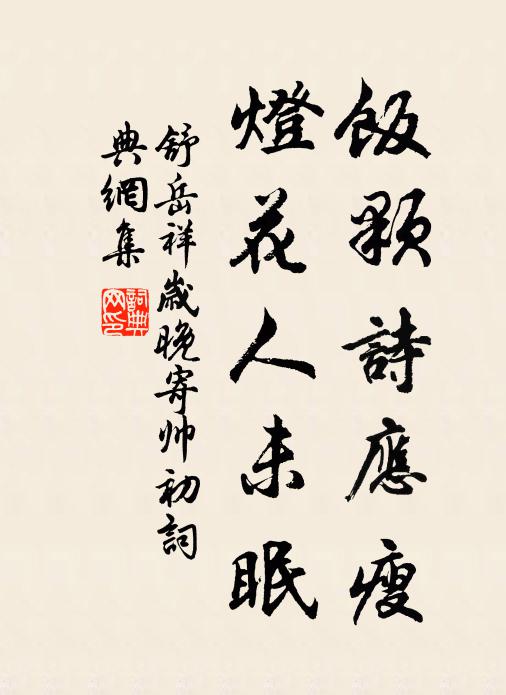 飯顆詩應瘦
燈花人未眠
舒岳祥歲晚寄帅初詞
典網集
詞典网印